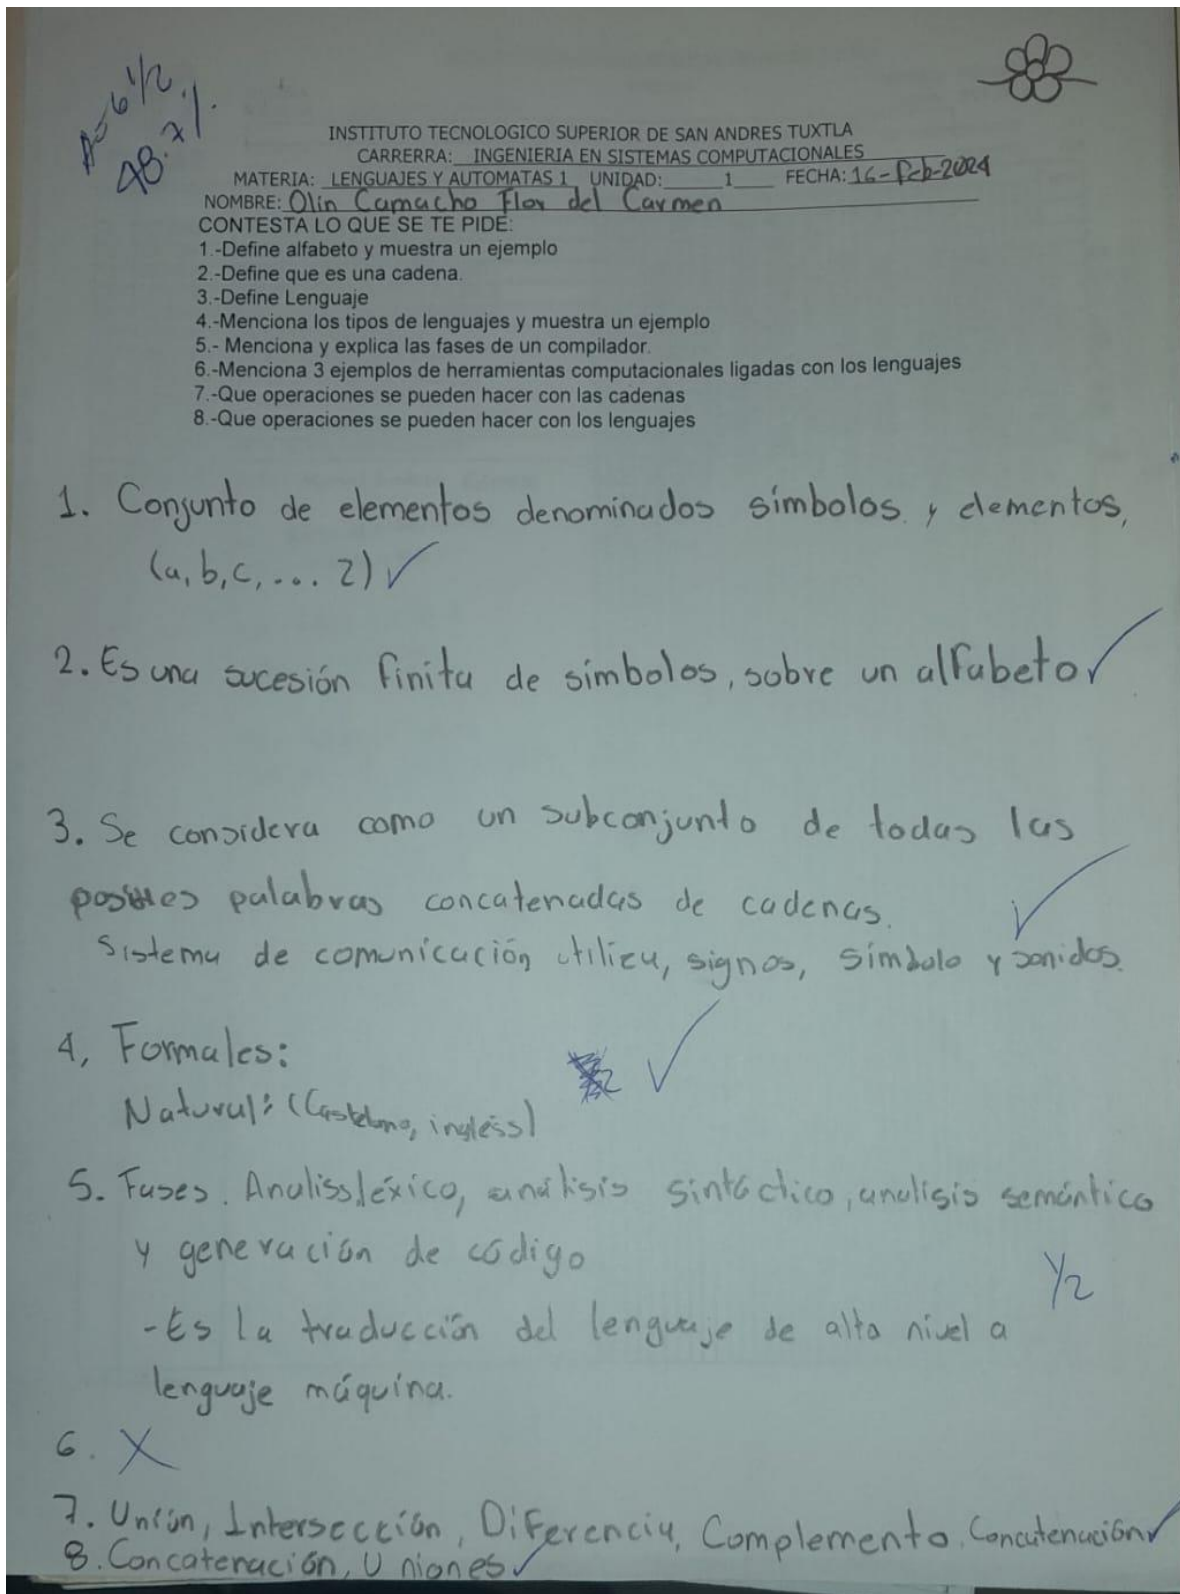 A=6 1/2.
48.7%
INSTITUTO TECNOLOGICO SUPERIOR DE SAN ANDRES TUXTLA
CARRERRA: INGENIERIA EN SISTEMAS COMPUTACIONALES
MATERIA: LENGUAJES Y AUTOMATAS 1 UNIDAD: 1 FECHA: 16-Feb-2024
NOMBRE: Olin Camacho Flor del Carmen
CONTESTA LO QUE SE TE PIDE:
1.-Define alfabeto y muestra un ejemplo
2.-Define que es una cadena.
3.-Define Lenguaje
4.-Menciona los tipos de lenguajes y muestra un ejemplo
5.- Menciona y explica las fases de un compilador.
6.-Menciona 3 ejemplos de herramientas computacionales ligadas con los lenguajes
7.-Que operaciones se pueden hacer con las cadenas
8.-Que operaciones se pueden hacer con los lenguajes
1. Conjunto de elementos denominados símbolos y elementos,
(a, b, c, ... z) ✓
2. Es una sucesión finita de símbolos, sobre un alfabeto ✓
3. Se considera como un subconjunto de todas las
posibles palabras concatenadas de cadenas. ✓
Sistema de comunicación utiliza, signos, símbolo y sonidos.
4, Formales: ✓
Natural: (Castellano, ingless)
5. Fases. Analiss léxico, análisis sintáctico, analisis semántico
y generación de código
1/2
-Es la traducción del lenguaje de alto nivel a
lenguaje máquina.
6. X
7. Unión, Intersección, Diferencia, Complemento, Concatenación ✓
8. Concatenación, Uniones ✓